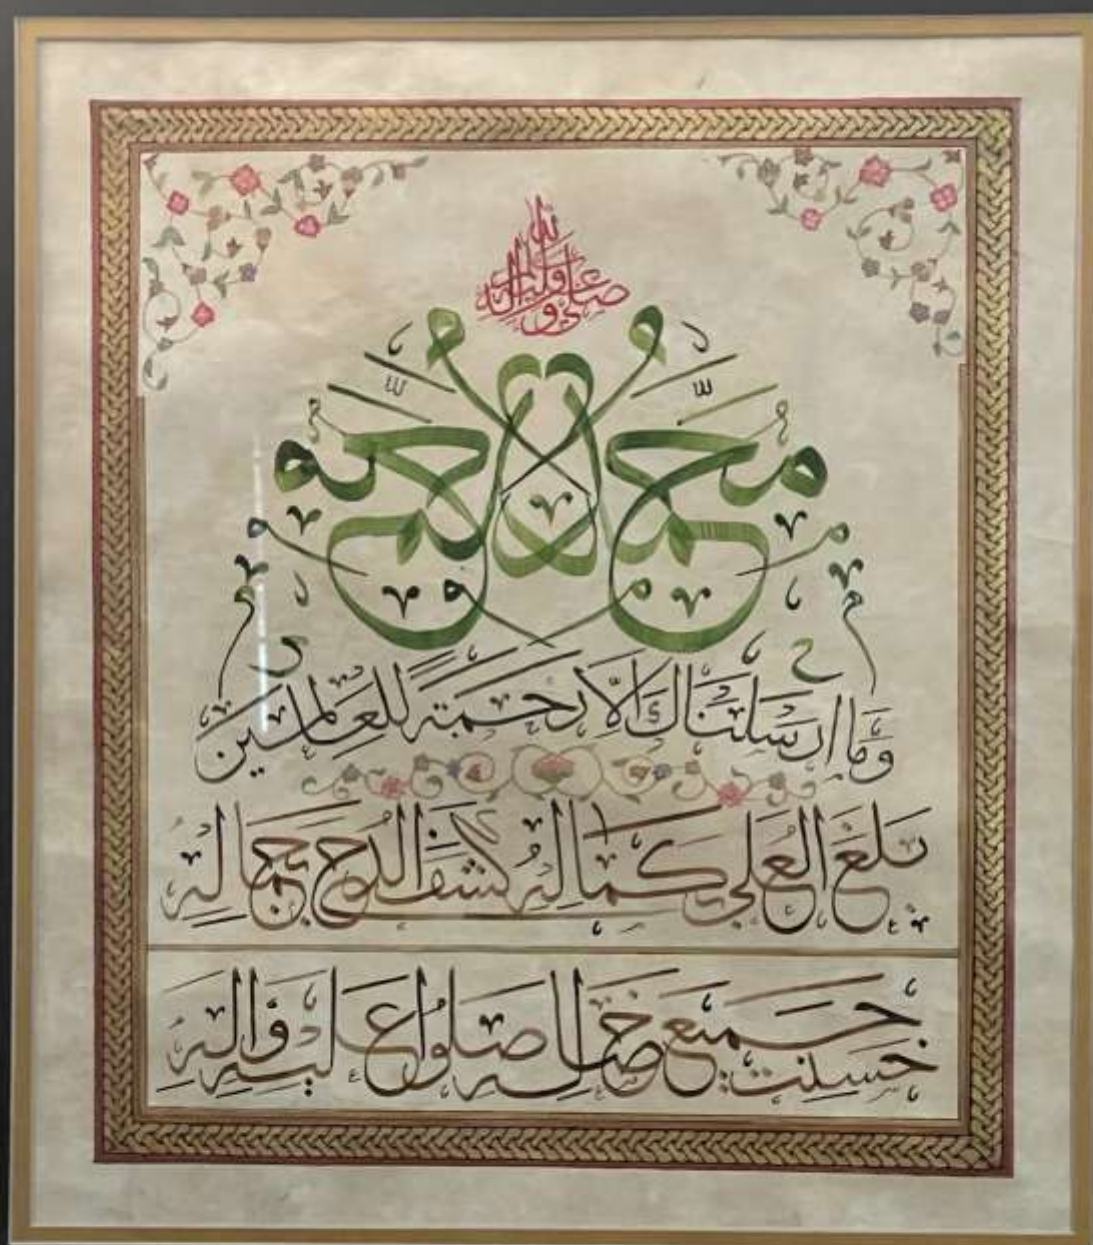 صلى الله عليه وآله
محمد محمد
وما ارسلناك الا رحمة للعالمين
بلغ العلى بكماله كشف الدجى بجماله
حسنت جميع خصاله صلوا عليه وآله